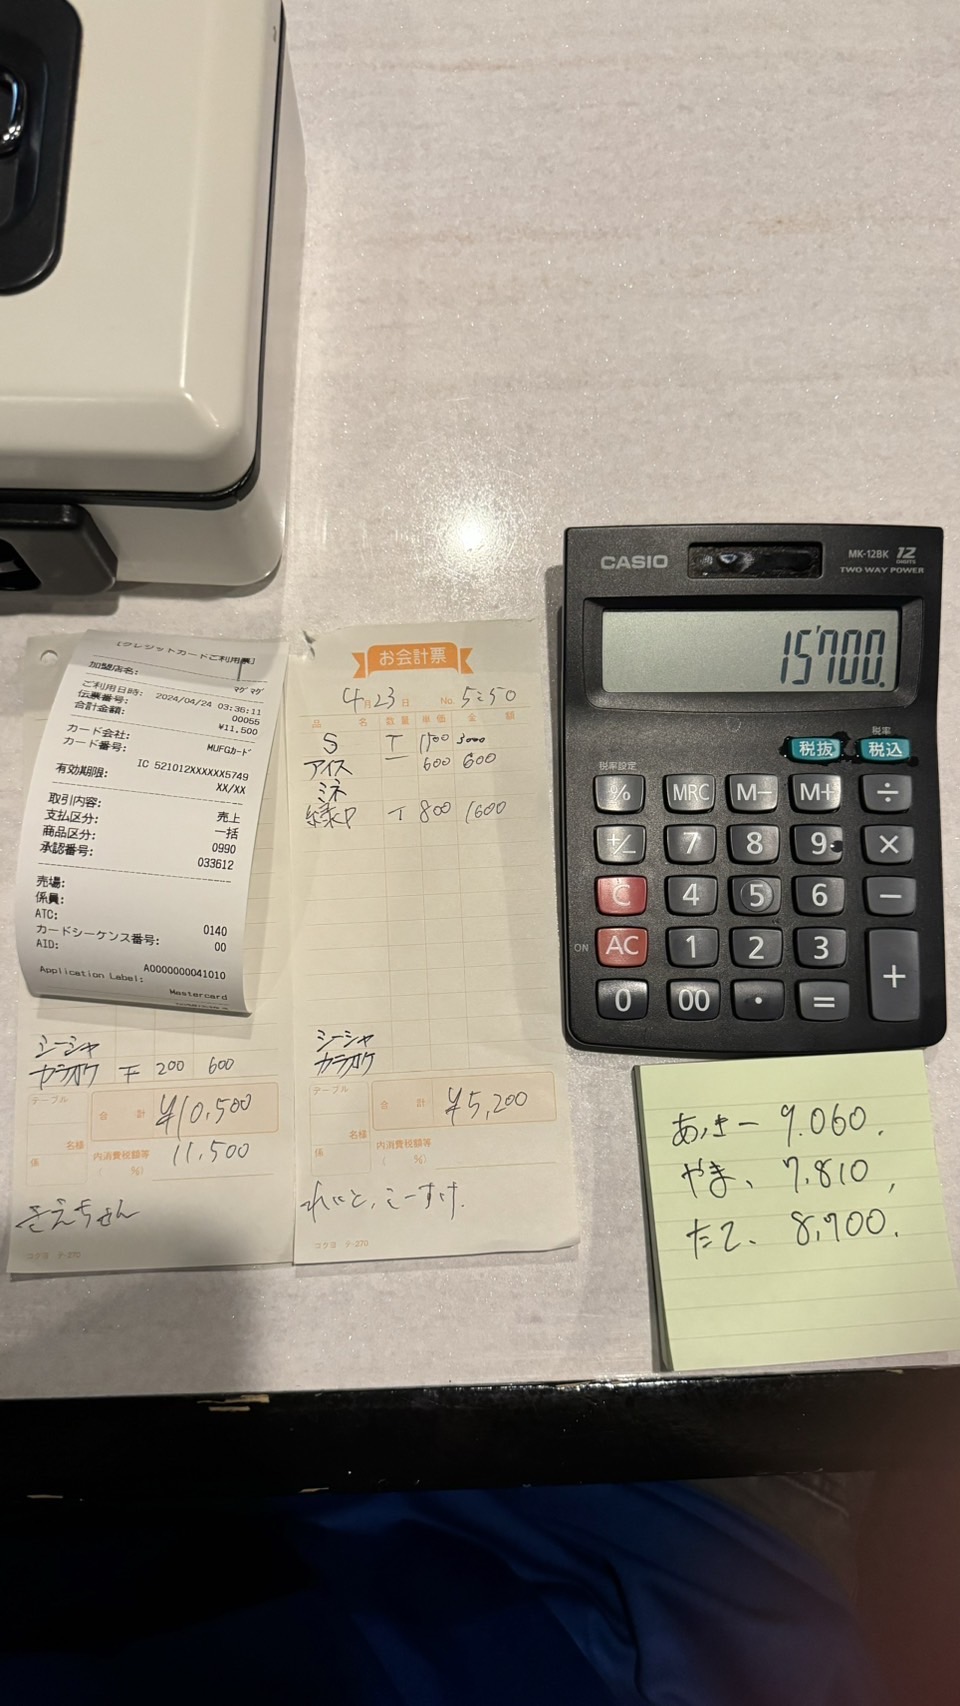 [クレジットカードご利用票]
加盟店名:
マグマグ
ご利用日時: 2024/04/24 03:36:11
伝票番号: 00055
合計金額: ¥11,500
カード会社: MUFGカード
カード番号:
IC 521012XXXXXX5749
有効期限: XX/XX
取引内容: 売上
支払区分: 一括
商品区分: 0990
承認番号: 033612
売場:
係員:
ATC: 0140
カードシーケンス番号: 00
AID:
A0000000041010
Application Label:
Mastercard
シーシャ
カラオケ 下 200 600
テーブル
合計 ¥10,500
名様
係
内消費税額等
( %)
11,500
さえちゃん
コクヨ テ-270
お会計票
4月23日 No. 5:50
品名 数量 単価 金額
S T 1500 3000
アイス 一 600 600
ミネ
緑P T 800 1600
シーシャ
カラオケ
テーブル
合計 ¥5,200
名様
係
内消費税額等
( %)
れいと、こーすけ.
コクヨ テ-270
CASIO
MK-12BK 12 DIGITS
TWO WAY POWER
15'700.
税率
税抜 税込
税率設定
% MRC M− M+ ÷
+/− 7 8 9 ×
C 4 5 6 −
ON AC 1 2 3 +
0 00 · =
あっきー 9.060.
やま、 7.810,
たて、 8,700.